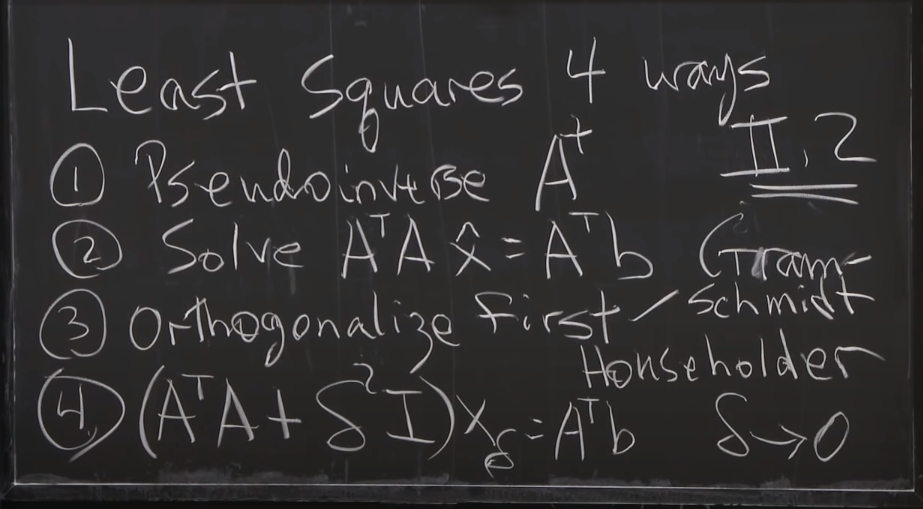 Least Squares 4 ways
II.2
① Pseudoinverse A⁺
② Solve AᵀA x̂ = Aᵀb
③ Orthogonalize first / Gram-Schmidt
Householder
④ (AᵀA + δ²I)x_δ = Aᵀb δ→0